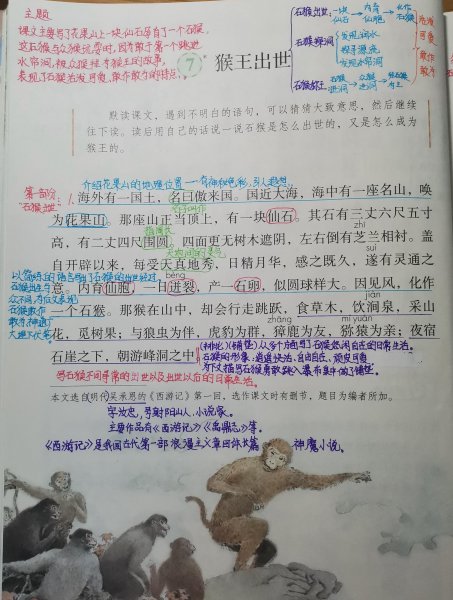 主题
课文主要写了花果山上一块仙石孕育了一个石猴,
这石猴与众猴玩耍时,因敢于第一个跳进
水帘洞,被众猴拜为猴王的故事,
表现了石猴活泼可爱、敢作敢为的特点。
石猴出世 一块仙石 → 内育仙胞 → 化作石猴
石猴探洞 发现源流 探寻源流 发现水帘洞
石猴称王 石猴进洞 众猴进洞 石猴为王
活泼可爱 敢作敢为
7 猴王出世
默读课文,遇到不明白的语句,可以猜猜大致意思,然后继续
往下读。读后用自己的话说一说石猴是怎么出世的,又是怎么成为
猴王的。
介绍花果山的地理位置——有神秘色彩,引人遐想
第一部分:石猴出世
1.海外有一国土,名曰傲来国。国近大海,海中有一座名山,唤
为花果山。那座山正当顶上,有一块仙石,其石有三丈六尺五寸
zhī
高,有二丈四尺围圆。四面更无树木遮阴,左右倒有芝兰相衬。盖
suì
自开辟以来,每受天真地秀,日精月华,感之既久,遂有灵通之
bèng
意。内育仙胞,一日迸裂,产一石卵,似圆球样大。因见风,化作
jiàn
一个石猴。那猴在山中,却会行走跳跃,食草木,饮涧泉,采山
zhāng
花,觅树果;与狼虫为伴,虎豹为群,獐鹿为友,猕猿为亲;夜宿
mí yuán
石崖之下,朝游峰洞之中。
写石猴不同寻常的出世以及出世以后的日常生活。
本文选自明代吴承恩的《西游记》第一回,选作课文时有删节,题目为编者所加。
字汝忠,号射阳山人,小说家。
主要作品有《西游记》《禹鼎志》等。
《西游记》是我国古代第一部浪漫主义章回体长篇神魔小说。